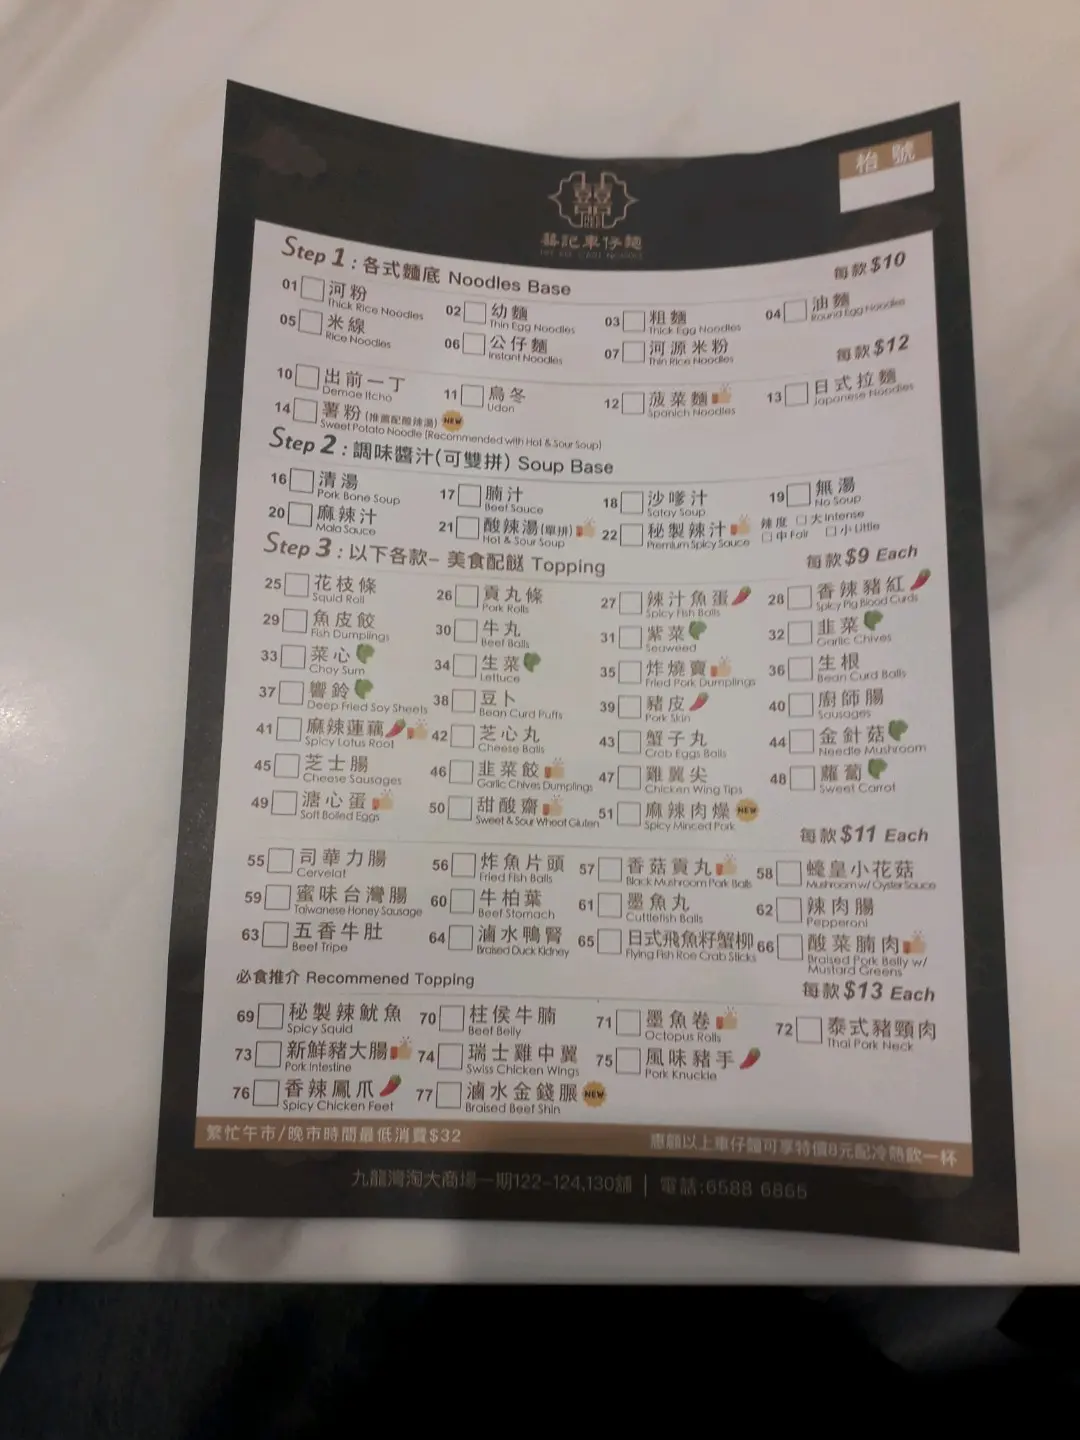 枱號
囍記車仔麵
Step 1 : 各式麵底 Noodles Base 每款 $10
01 河粉 Thick Rice Noodles 02 幼麵 Thin Egg Noodles 03 粗麵 Thick Egg Noodles 04 油麵 Round Egg Noodles
05 米線 Rice Noodles 06 公仔麵 Instant Noodles 07 河源米粉 Thin Rice Noodles
每款 $12
10 出前一丁 Demae Itcho 11 烏冬 Udon 12 菠菜麵 Spanich Noodles 13 日式拉麵 Japanese Noodles
14 薯粉 (推薦配酸辣湯) NEW Sweet Potato Noodle (Recommended with Hot & Sour Soup)
Step 2 : 調味醬汁(可雙拼) Soup Base
16 清湯 Pork Bone Soup 17 腩汁 Beef Sauce 18 沙嗲汁 Satay Soup 19 無湯 No Soup
20 麻辣汁 Mala Sauce 21 酸辣湯(單拼) Hot & Sour Soup 22 秘製辣汁 Premium Spicy Sauce 辣度 大 Intense 中 Fair 小 Little
Step 3 : 以下各款– 美食配餸 Topping 每款 $9 Each
25 花枝條 Squid Roll 26 貢丸條 Pork Rolls 27 辣汁魚蛋 Spicy Fish Balls 28 香辣豬紅 Spicy Pig Blood Curds
29 魚皮餃 Fish Dumplings 30 牛丸 Beef Balls 31 紫菜 Seaweed 32 韭菜 Garlic Chives
33 菜心 Choy Sum 34 生菜 Lettuce 35 炸燒賣 Fried Pork Dumplings 36 生根 Bean Curd Balls
37 響鈴 Deep Fried Soy Sheets 38 豆卜 Bean Curd Puffs 39 豬皮 Pork Skin 40 廚師腸 Sausages
41 麻辣蓮藕 Spicy Lotus Root 42 芝心丸 Cheese Balls 43 蟹子丸 Crab Eggs Balls 44 金針菇 Needle Mushroom
45 芝士腸 Cheese Sausages 46 韭菜餃 Garlic Chives Dumplings 47 雞翼尖 Chicken Wing Tips 48 蘿蔔 Sweet Carrot
49 溏心蛋 Soft Boiled Eggs 50 甜酸齋 Sweet & Sour Wheat Gluten 51 麻辣肉燥 NEW Spicy Minced Pork
每款 $11 Each
55 司華力腸 Cervelat 56 炸魚片頭 Fried Fish Balls 57 香菇貢丸 Black Mushroom Pork Balls 58 蠔皇小花菇 Mushroom w/ Oyster Sauce
59 蜜味台灣腸 Taiwanese Honey Sausage 60 牛柏葉 Beef Stomach 61 墨魚丸 Cuttlefish Balls 62 辣肉腸 Pepperoni
63 五香牛肚 Beef Tripe 64 滷水鴨腎 Braised Duck Kidney 65 日式飛魚籽蟹柳 Flying Fish Roe Crab Sticks 66 酸菜腩肉 Braised Pork Belly w/ Mustard Greens
必食推介 Recommened Topping 每款 $13 Each
69 秘製辣魷魚 Spicy Squid 70 柱侯牛腩 Beef Belly 71 墨魚卷 Octopus Rolls 72 泰式豬頸肉 Thai Pork Neck
73 新鮮豬大腸 Pork Intestine 74 瑞士雞中翼 Swiss Chicken Wings 75 風味豬手 Pork Knuckle
76 香辣鳳爪 Spicy Chicken Feet 77 滷水金錢𦟌 NEW Braised Beef Shin
繁忙午市/晚市時間最低消費$32 惠顧以上車仔麵可享特價8元配冷熱飲一杯
九龍灣淘大商場一期122-124,130舖 | 電話:6588 6865